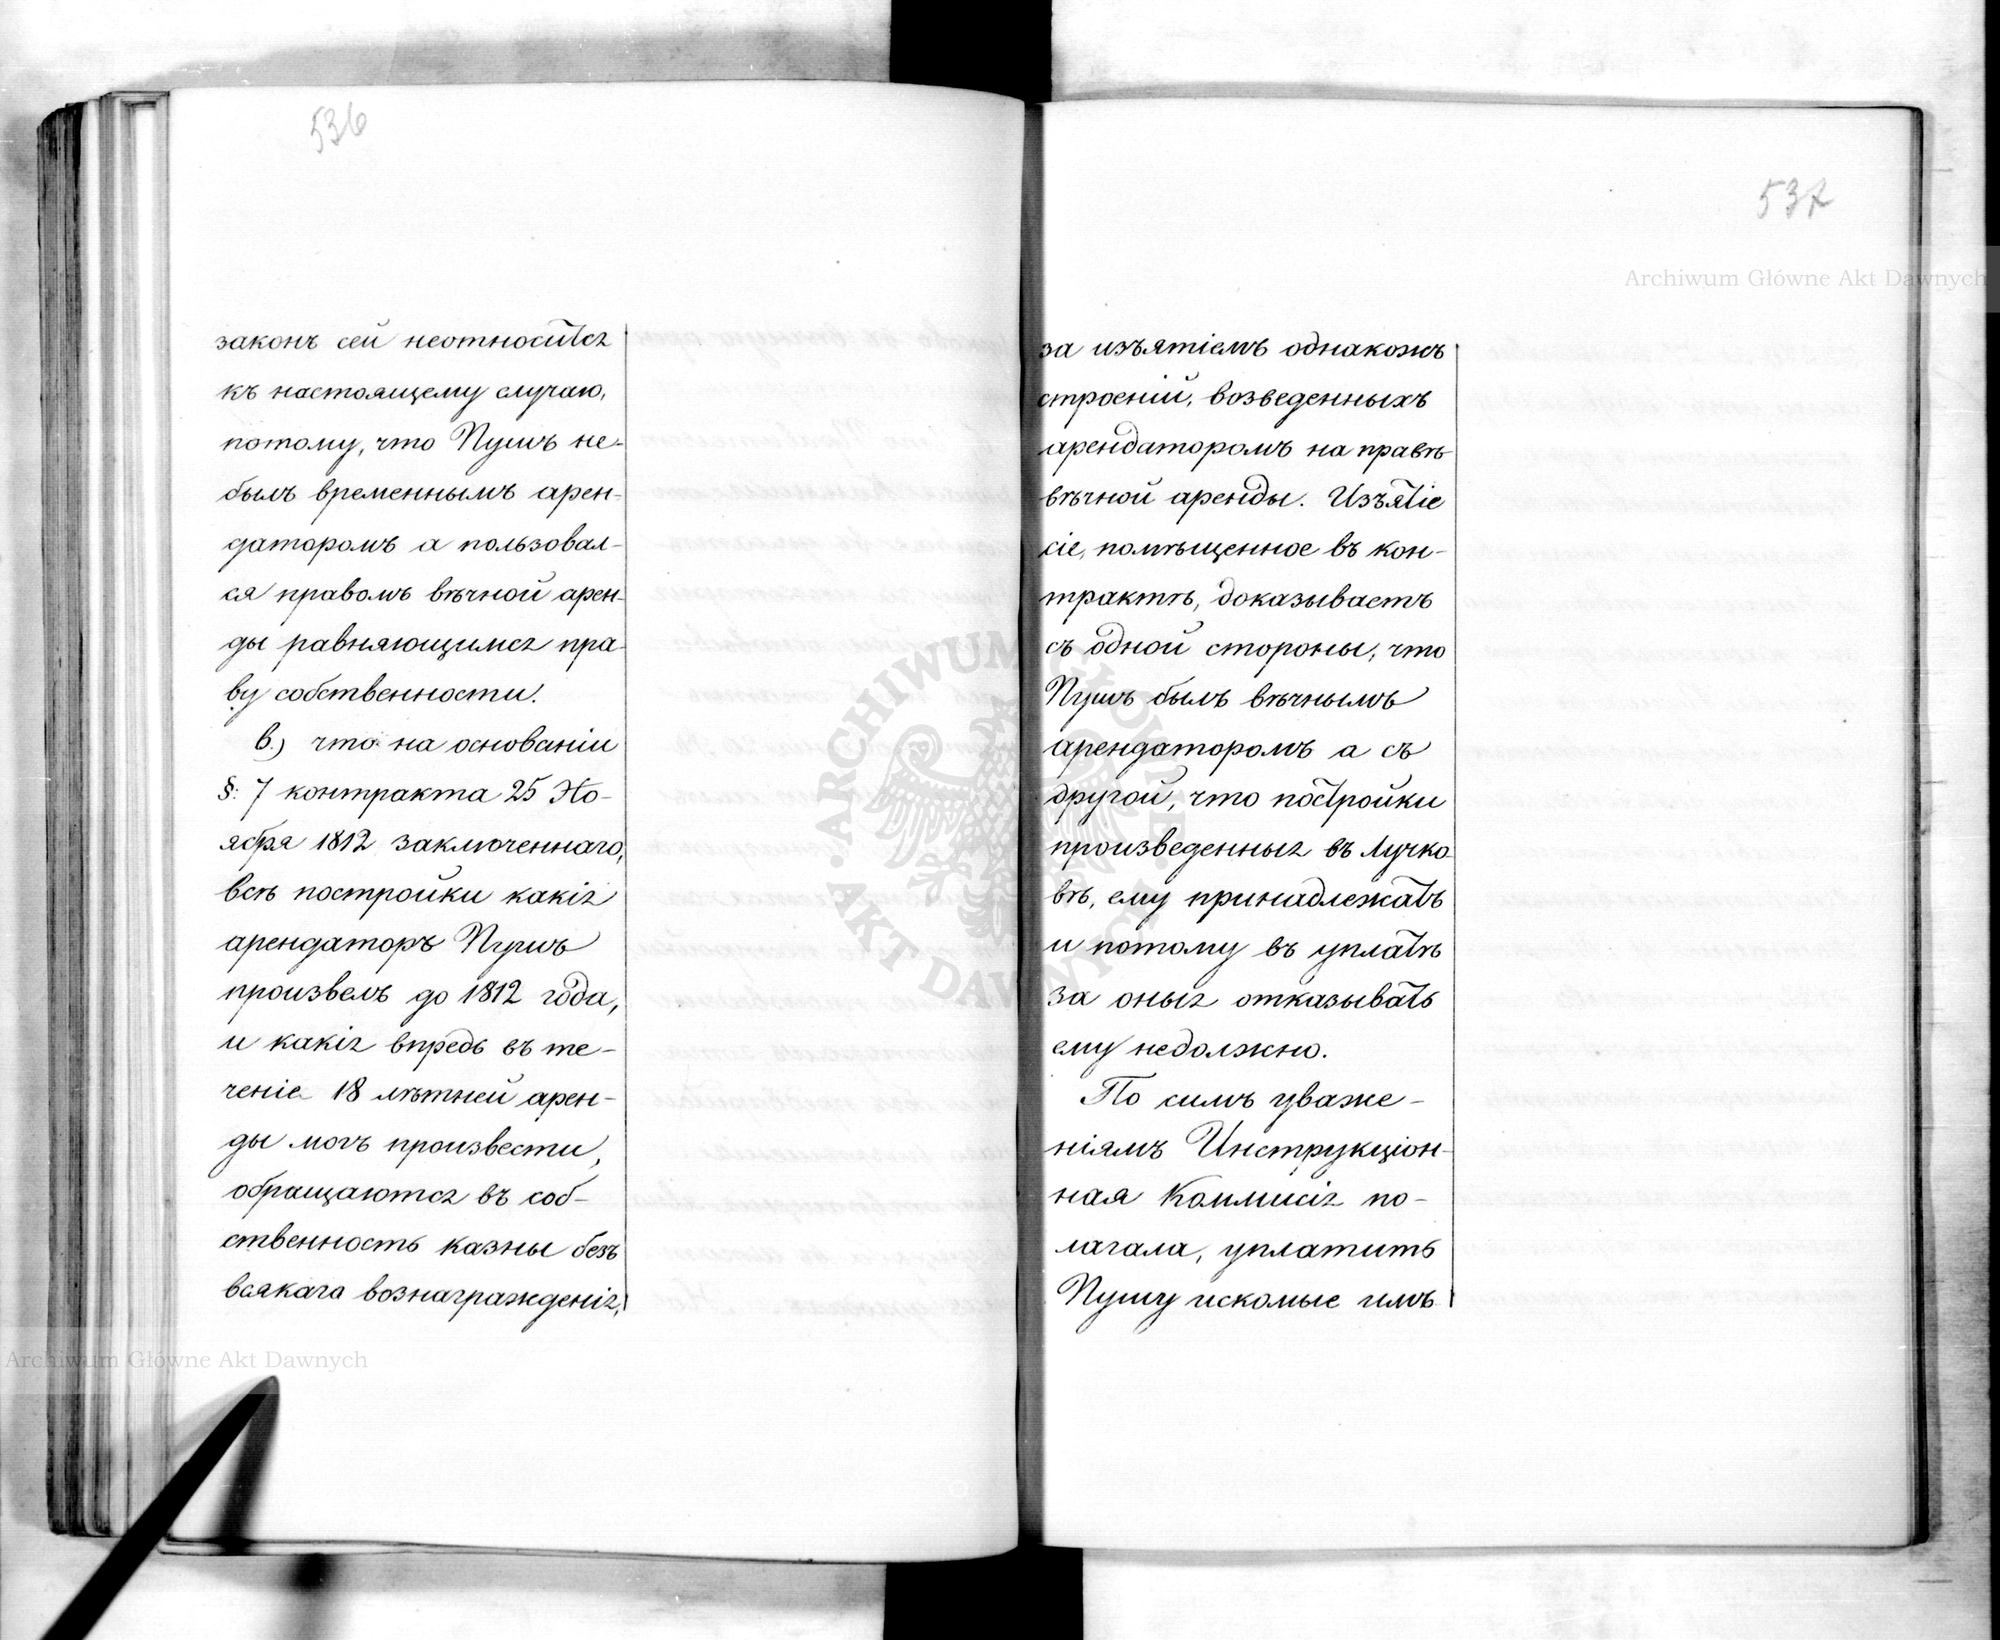 536
законъ сей неотносится
къ настоящему случаю,
потому, что Пушъ не-
былъ временнымъ арен-
даторомъ а пользовал-
ся правомъ вѣчной арен-
ды равняющимся пра-
ву собственности.
в.) что на основаніи
§: 7 контракта 25 Но-
ября 1812 заключеннаго,
всѣ постройки какія
арендаторъ Пушъ
произвелъ до 1812 года,
и какія впредь въ те-
ченіе 18 лѣтней арен-
ды могъ произвести,
обращаются въ соб-
ственность казны безъ
всякаго вознагражденія,
537
за изъятіемъ однакожъ
строеній, возведенныхъ
арендаторомъ на правѣ
вѣчной аренды. Изъятіе
сіе, помѣщенное въ кон-
трактѣ, доказываетъ
съ одной стороны, что
Пушъ былъ вѣчнымъ
арендаторомъ а съ
другой, что постройки
произведенныя въ Лучко-
вѣ, ему принадлежатъ
и потому въ уплатѣ
за оныя отказывать
ему недолжно.
По симъ уваже-
ніямъ Инструкціон-
ная Коммисія по-
лагала, уплатить
Пушу искомые имъ
Archiwum Główne Akt Dawnych
Archiwum Główne Akt Dawnych